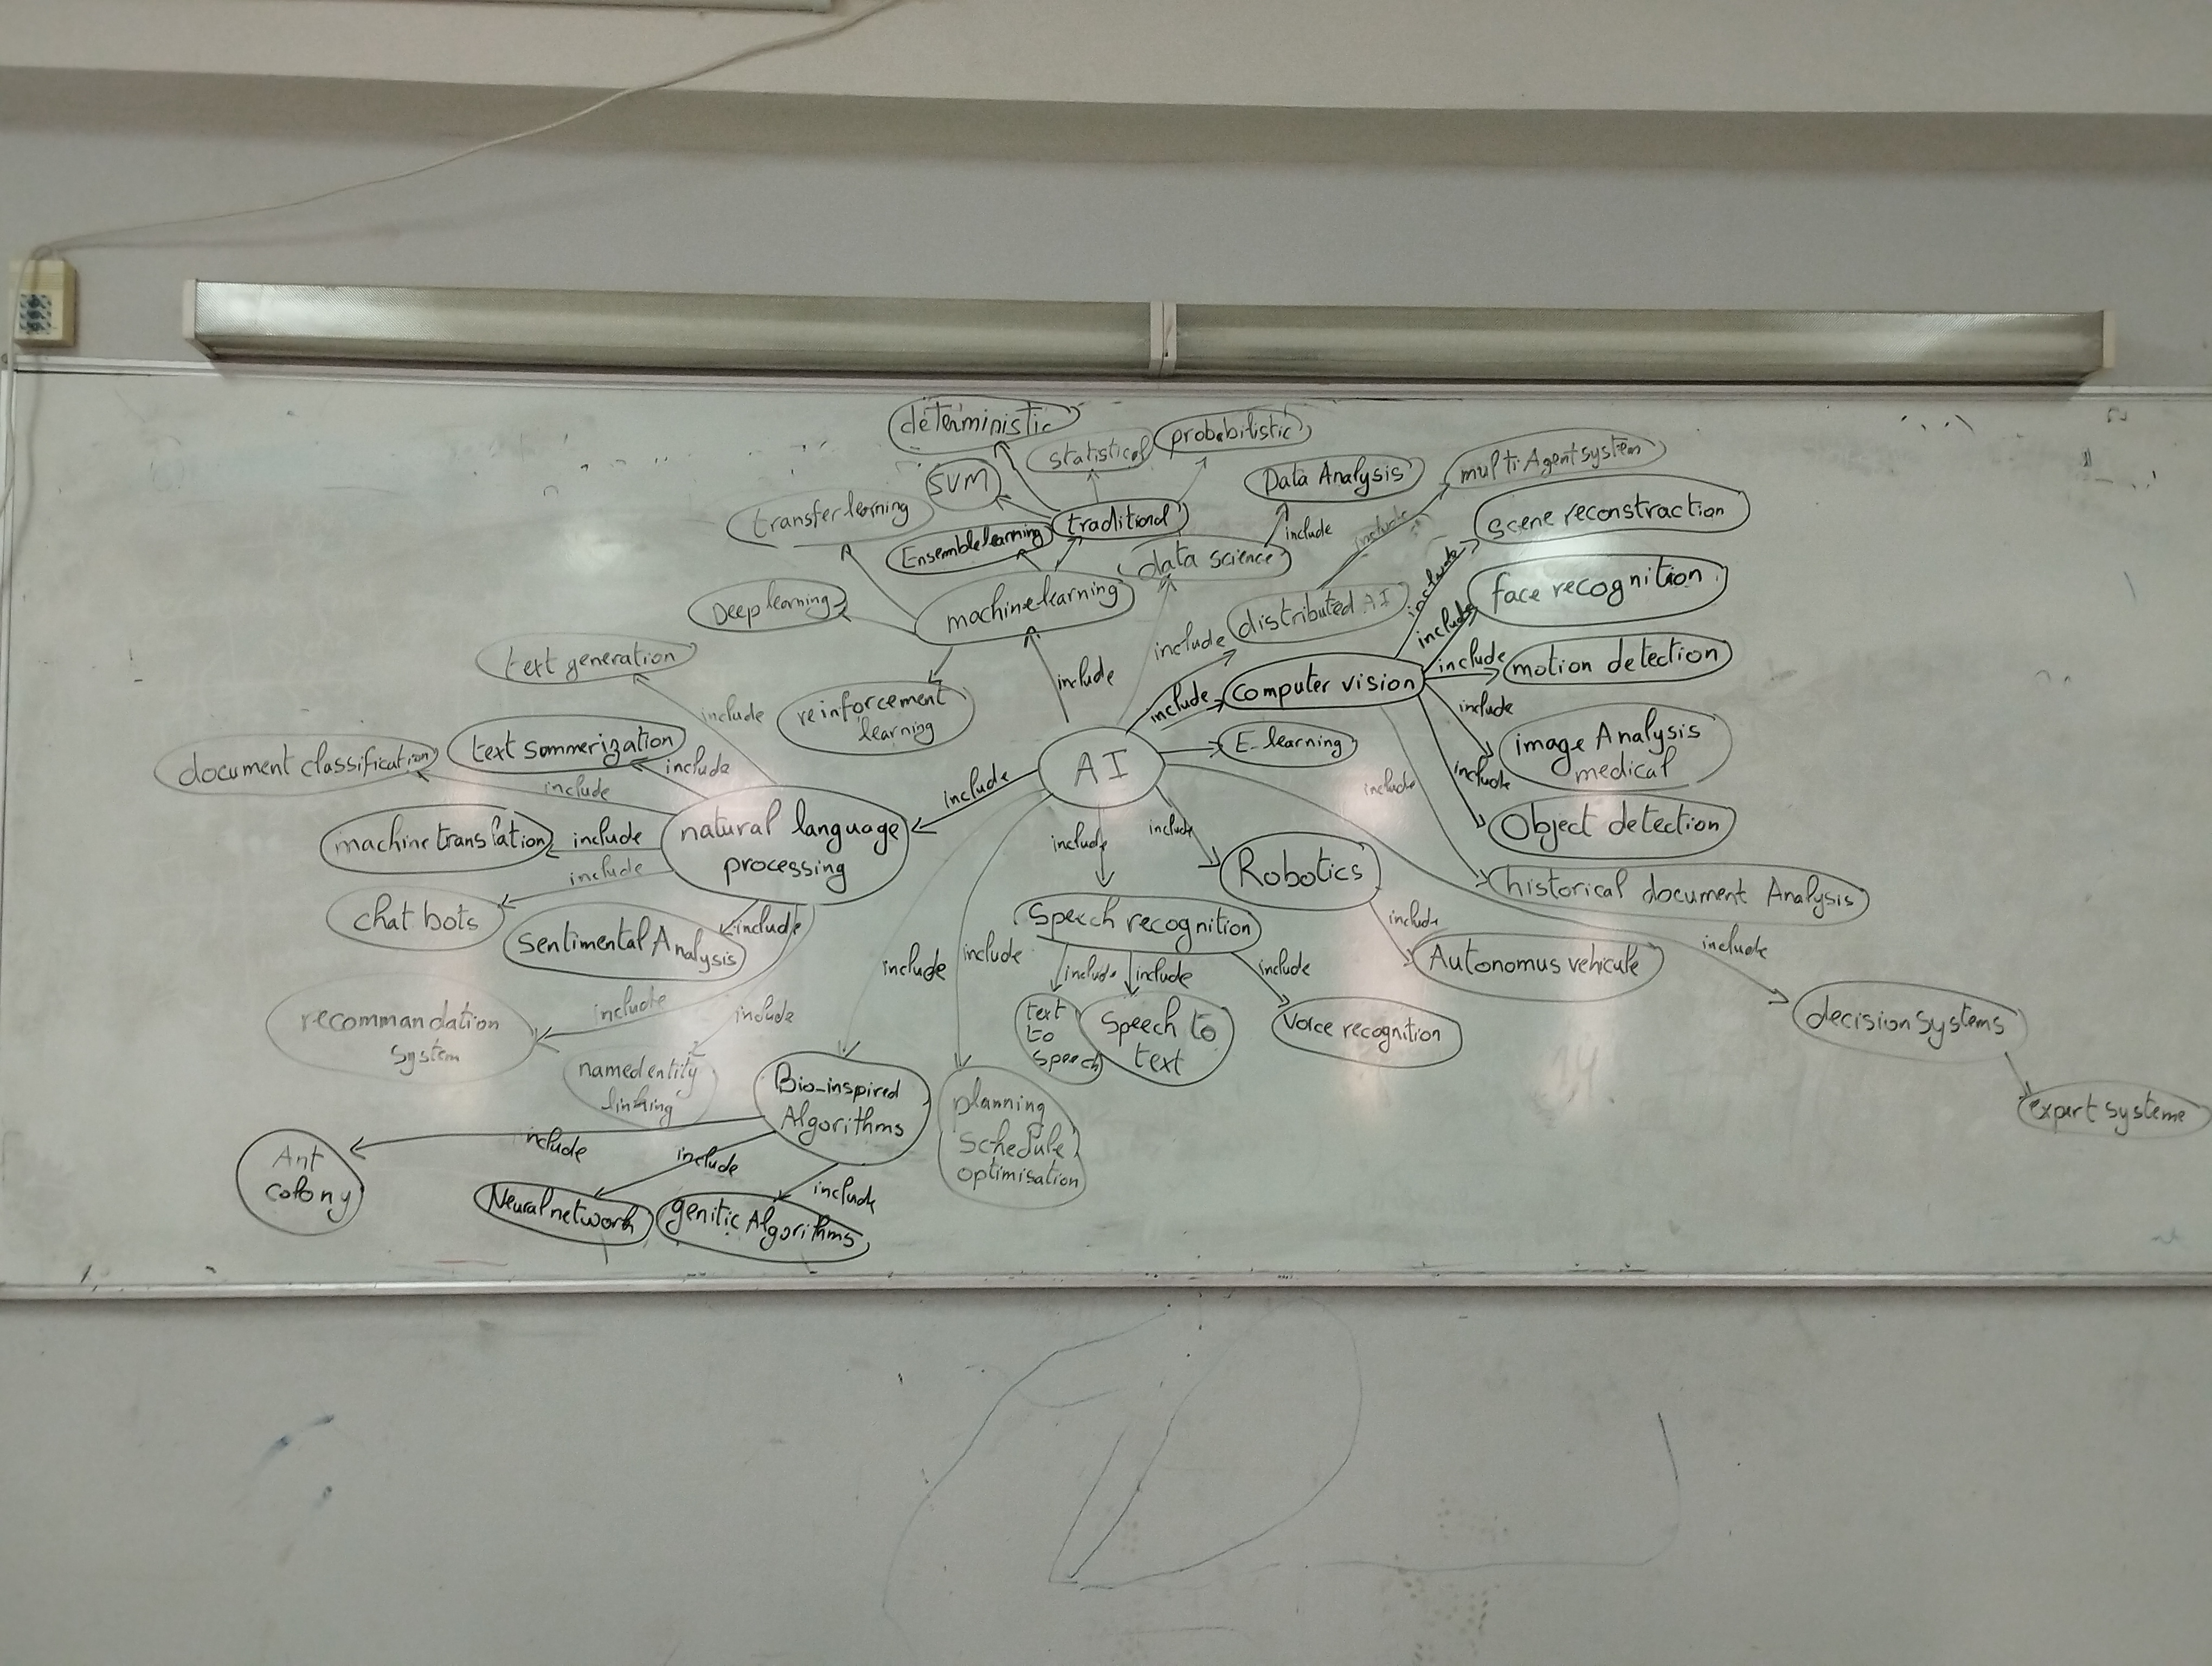 deterministic
statistical
probabilistic
SVM
Data Analysis
multi Agent system
transfer learning
Ensemble learning
traditional
include
include
scene reconstraction
data science
include
face recognition
Deep learning
machine learning
distributed AI
include
include
include
motion detection
text generation
include
computer vision
include
include
reinforcement
learning
include
image Analysis
medical
text sommerization
include
E-learning
document classification
include
AI
include
include
include
Object detection
natural language
processing
machine translation
include
include
include
Robotics
historical document Analysis
include
chat bots
include
Speech recognition
include
Autonomus vehicule
include
sentimental Analysis
include
include
include
include
include
recommandation
system
include
include
text
to
speech
Speech to
text
Voice recognition
decision systems
named entity
linking
Bio-inspired
Algorithms
planning
Schedule
optimisation
expert systeme
include
include
include
Ant
colony
Neural network
genitic Algorithms